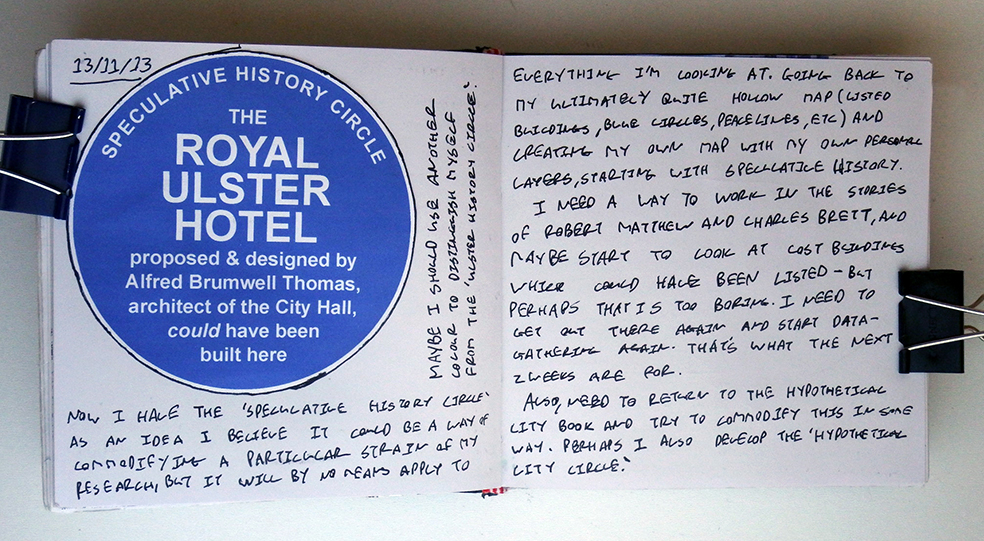 13/11/13
SPECULATIVE HISTORY CIRCLE
THE
ROYAL
ULSTER
HOTEL
proposed & designed by
Alfred Brumwell Thomas,
architect of the City Hall,
could have been
built here
MAYBE I SHOULD USE ANOTHER
COLOUR TO DISTINGUISH MYSELF
FROM THE 'ULSTER HISTORY CIRCLE.'
NOW I HAVE THE 'SPECULATIVE HISTORY CIRCLE'
AS AN IDEA I BELIEVE IT COULD BE A WAY OF
COMMODIFYING A PARTICULAR STRAIN OF MY
RESEARCH, BUT IT WILL BY NO MEANS APPLY TO
EVERYTHING I'M LOOKING AT. GOING BACK TO
MY ULTIMATELY QUITE HOLLOW MAP (LISTED
BUILDINGS, BLUE CIRCLES, PEACELINES, ETC) AND
CREATING MY OWN MAP WITH MY OWN PERSONAL
LAYERS, STARTING WITH SPECULATIVE HISTORY.
I NEED A WAY TO WORK IN THE STORIES
OF ROBERT MATTHEW AND CHARLES BRETT, AND
MAYBE START TO LOOK AT LOST BUILDINGS
WHICH COULD HAVE BEEN LISTED - BUT
PERHAPS THAT IS TOO BORING. I NEED TO
GET OUT THERE AGAIN AND START DATA-
GATHERING AGAIN. THAT'S WHAT THE NEXT
2 WEEKS ARE FOR.
ALSO, NEED TO RETURN TO THE HYPOTHETICAL
CITY BOOK AND TRY TO COMMODIFY THIS IN SOME
WAY. PERHAPS I ALSO DEVELOP THE 'HYPOTHETICAL
CITY CIRCLE.'